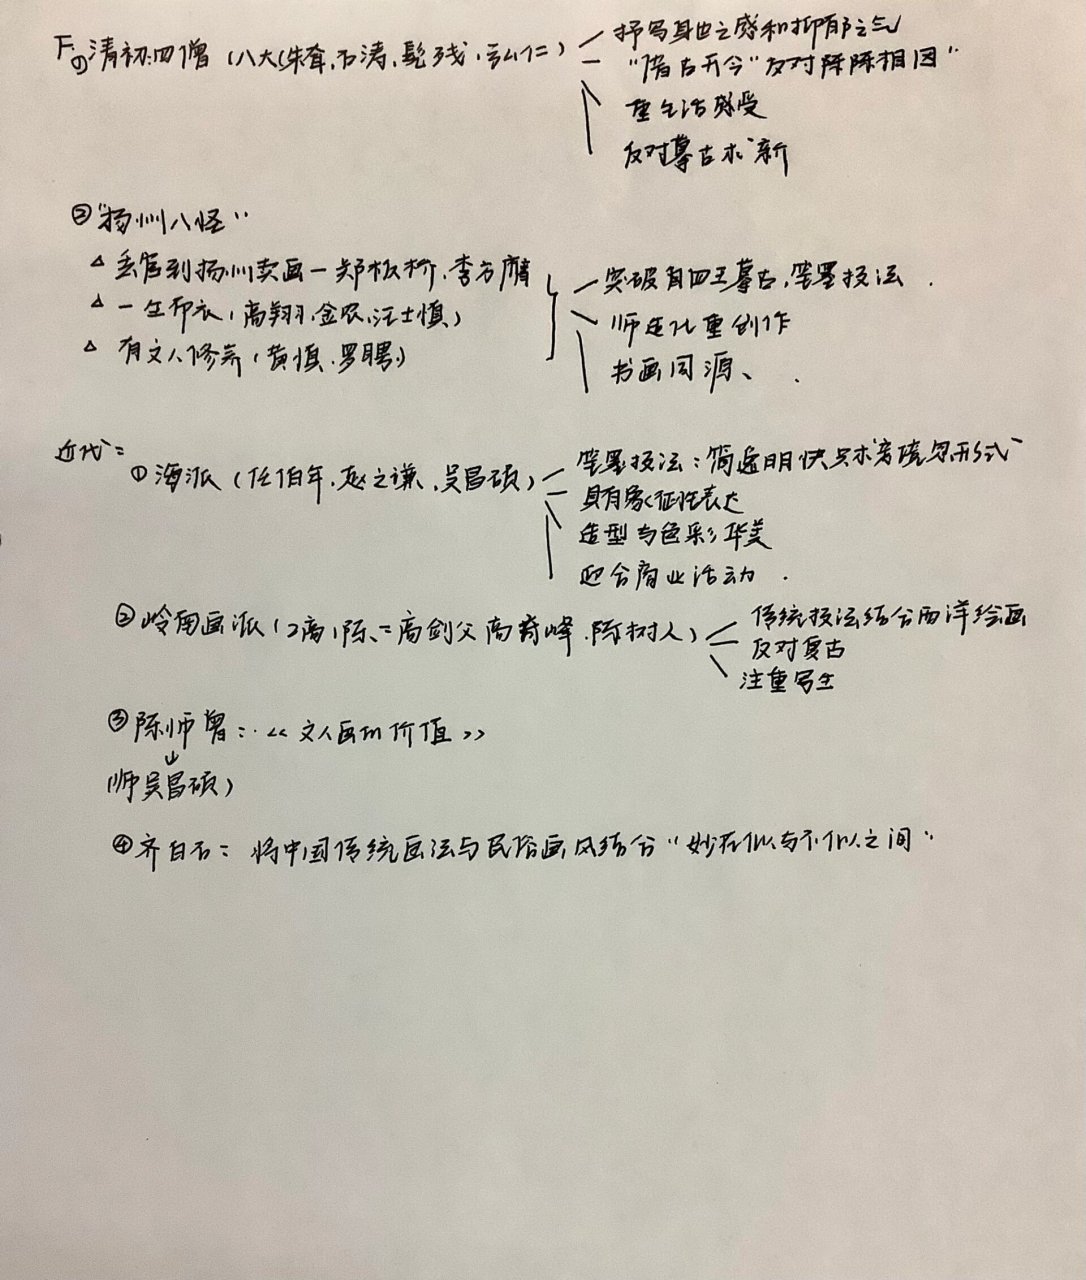 下
①清初四僧（八大(朱耷,石涛,髡残,弘仁） — 抒写身世之感和抑郁之气
— "借古开今"反对陈陈相因"
重生活感受
反对摹古求新
②"扬州八怪"
△ 丢官到扬州卖画 — 郑板桥.李方膺
△ 一生布衣(高翔,金农,汪士慎)
△ 有文人修养(黄慎.罗聘)
— 突破有四王摹古,笔墨技法.
师造化重创作
书画同源、.
近代:
①海派(任伯年,赵之谦,吴昌硕) — 笔墨技法:简逸明快
— 具有象征性表达
造型与色彩华美
迎合商业活动.
②岭南画派(2高1陈:高剑父 高奇峰.陈树人) — 传统技法结合西洋绘画
— 反对复古
注重写生
③陈师曾:《文人画的价值》
↓
(师吴昌硕)
④齐白石:将中国传统画法与民俗画风结合"妙在似与不似之间"